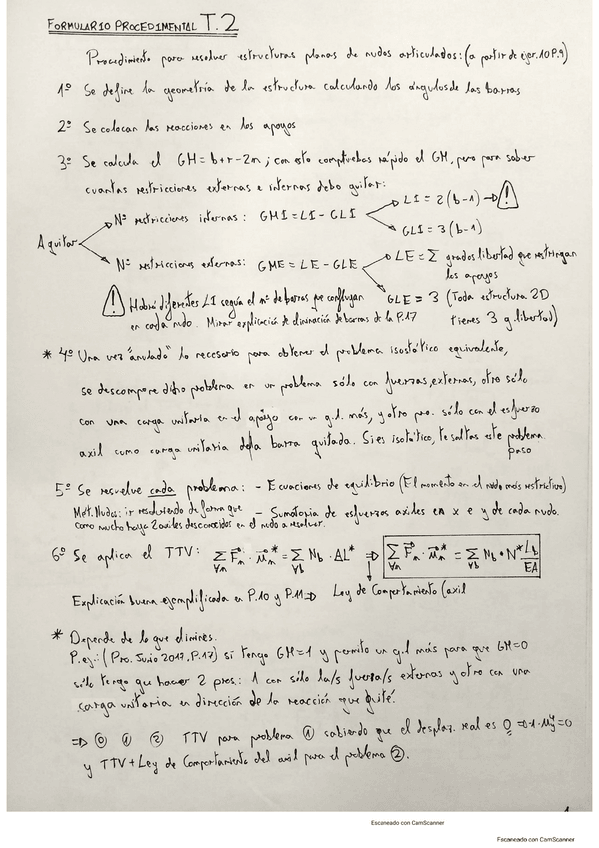 FORMULARIO PROCEDIMENTAL T.2
Procedimiento para resolver estructuras planas de nudos articulados: (a partir de ejer.10 P.9)
1º Se define la geometría de la estructura calculando los ángulos de las barras
2º Se colocan las reacciones en los apoyos
3º Se calcula el GH = b+r-2n ; con esto compruebas rápido el GH, pero para saber
cuantas restricciones externas e internas debo quitar:
A quitar
Nº restricciones internas : GHI = LI - GLI
LI = 2(b-1) → !
GLI = 3(b-1)
Nº restricciones externas: GHE = LE - GLE
LE = Σ grados libertad que restringan
los apoyos
GLE = 3 (Toda estructura 2D
tienes 3 g.libertad)
! Habrá diferentes LI según el nº de barras que confluyan
en cada nudo. Mirar explicación de eliminación de barras de la P.17
* 4º Una vez "anulado" lo necesario para obtener el problema isostático equivalente,
se descompone dicho problema en un problema sólo con fuerzas externas, otro sólo
con una carga unitaria en el apoyo con un g.l. más, y otro pro. sólo con el esfuerzo
axil como carga unitaria de la barra quitada. Si es isotático, te saltas este problema.
paso
5º Se resuelve cada problema: - Ecuaciones de equilibrio (El momento en el nudo más restrictivo)
Mét. Nudos: ir resolviendo de forma que
como mucho haya 2 axiles desconocidos en el nudo a resolver.
- Sumatoria de esfuerzos axiles en x e y de cada nudo.
6º Se aplica el TTV: Σ∀n F⃗n · u⃗n* = Σ∀b Nb · ΔL* ⇒ Σ∀n F⃗n · u⃗n* = Σ∀b Nb · N* Lb/EA
Explicación buena ejemplificada en P.10 y P.11 ⇒ Ley de Comportamiento (axil
* Depende de lo que elimines.
P.ej.: (Pro. Junio 2017, P.17) si tengo GH=1 y permito un g.l más para que GH=0
sólo tengo que hacer 2 pros.: 1 con sólo la/s fuerza/s externas y otro con una
carga unitaria en dirección de la reacción que quité.
⇒ ⓪ ① ② TTV para problema ① sabiendo que el desplaz. real es 0 ⇒ 1·uy=0
y TTV + Ley de Comportamiento del axil para el problema ②.
1
Escaneado con CamScanner
Escaneado con CamScanner